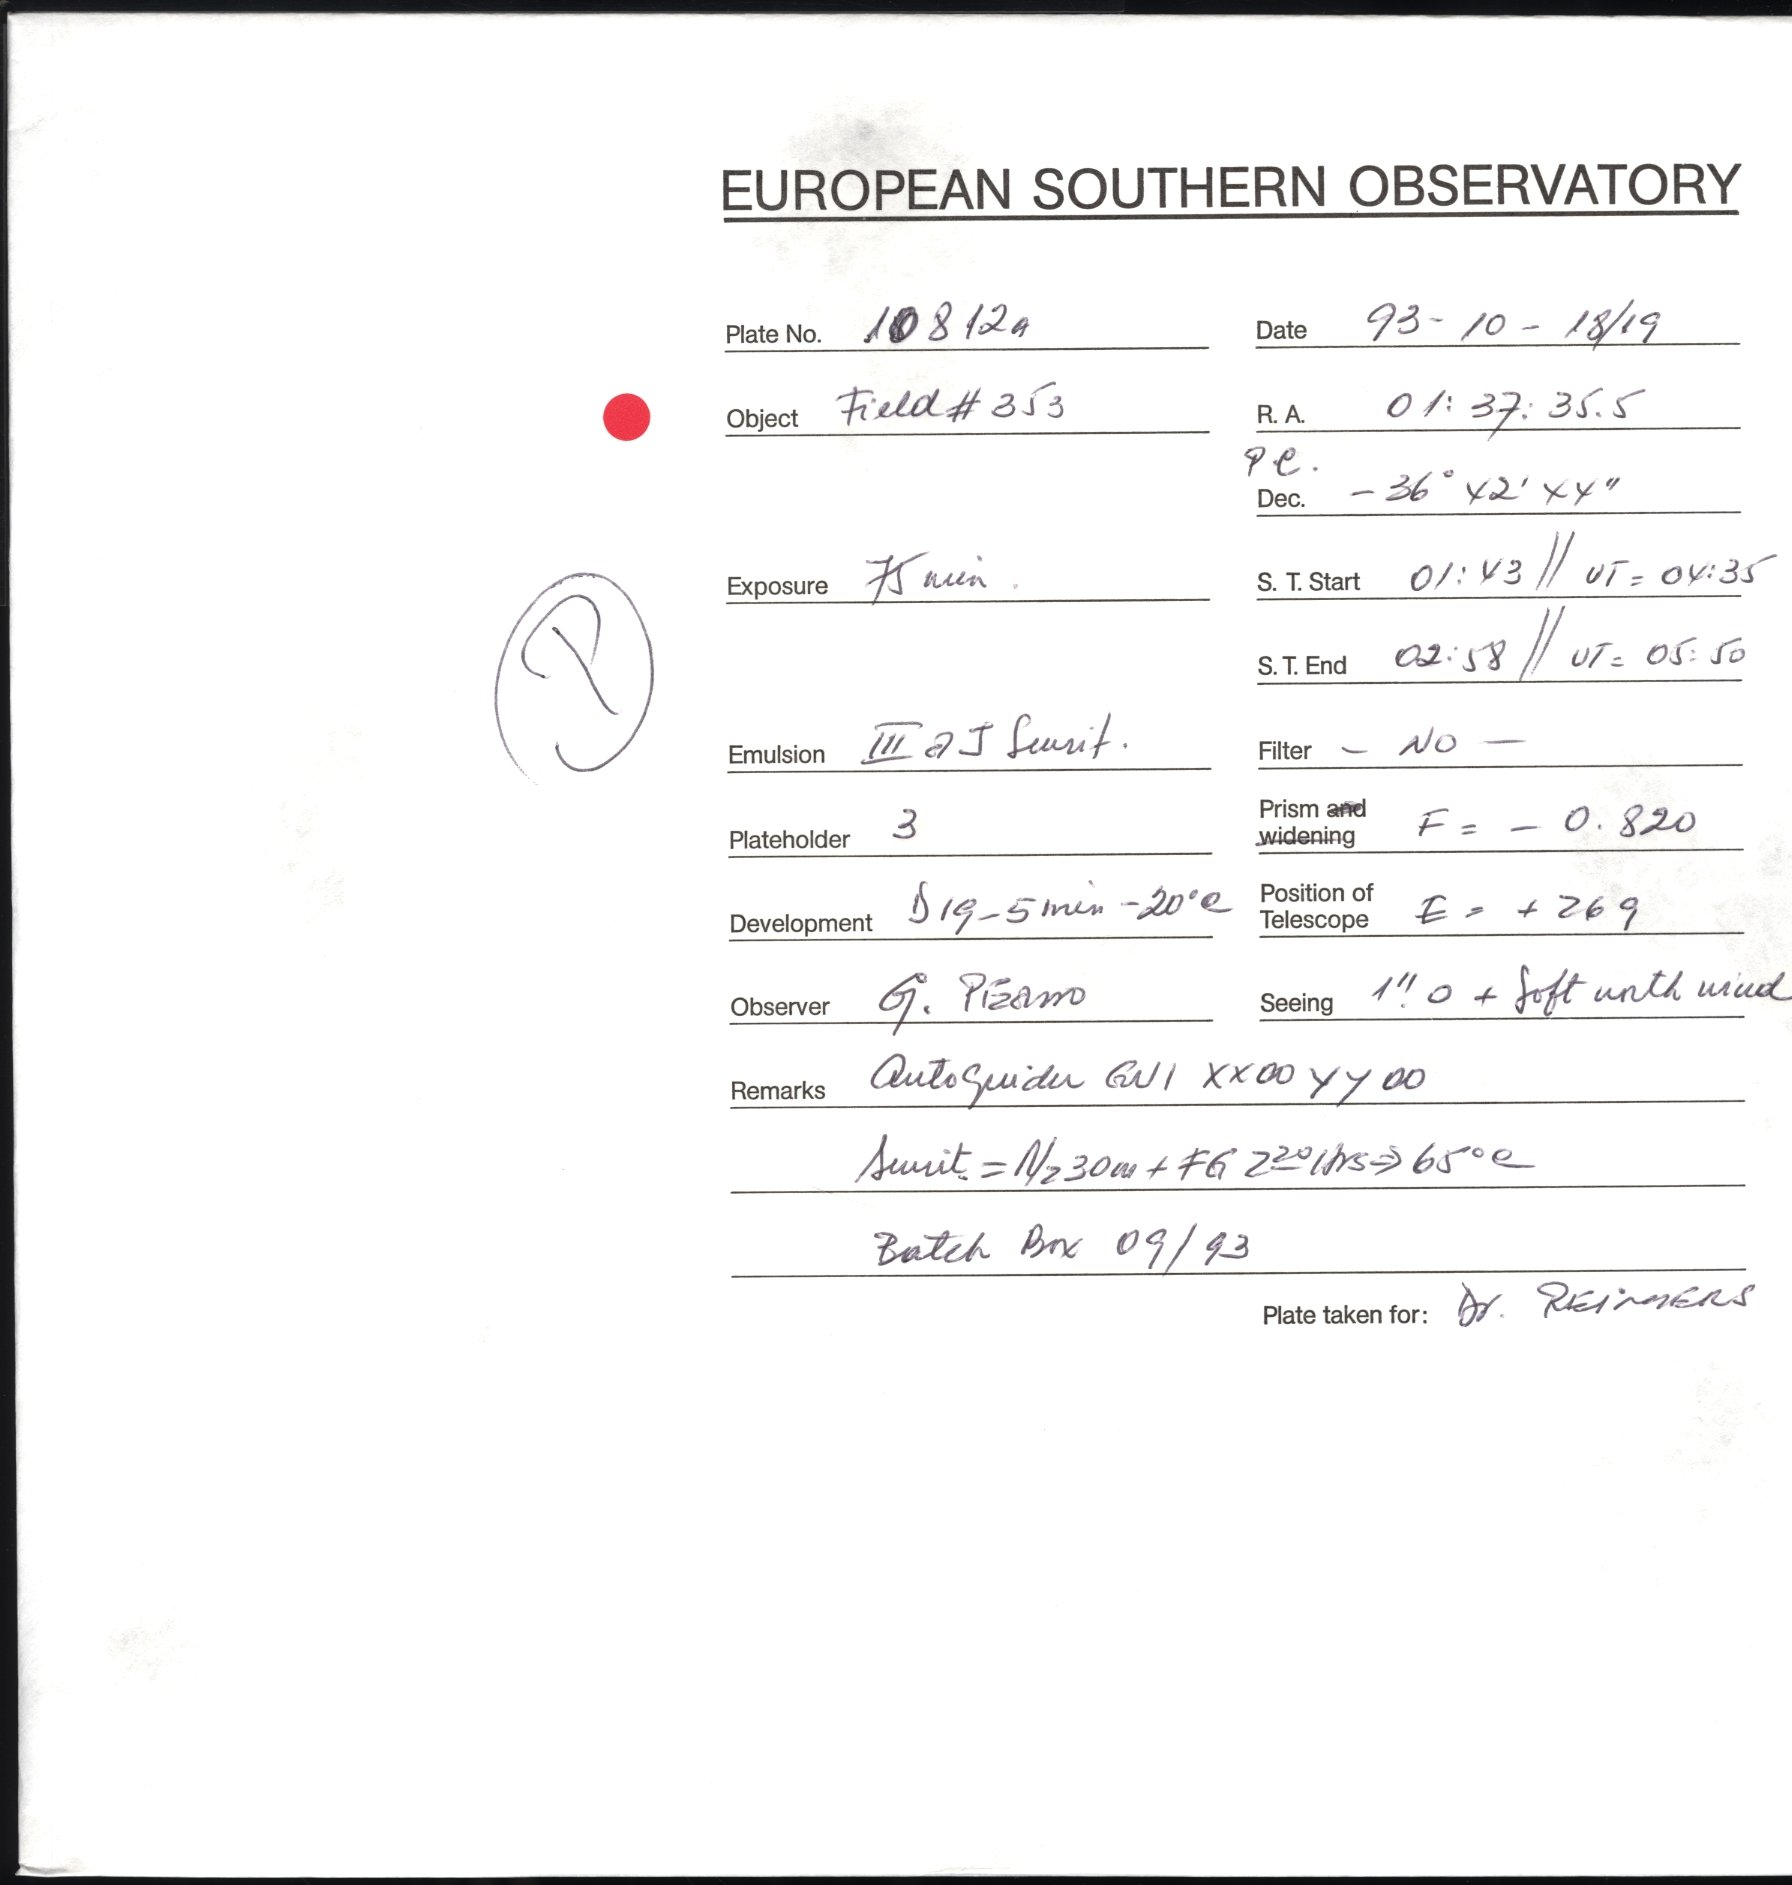 EUROPEAN SOUTHERN OBSERVATORY
Plate No. 10812a Date 93-10-18/19
Object Field # 353 R. A. 01:37:35.5
P
Dec. -36° 42' 44"
Exposure 75 min. S. T. Start 01:43 // UT = 04:35
S. T. End 02:58 // UT = 05:50
Emulsion III a J Sensit. Filter - NO -
Plateholder 3 Prism and widening F = - 0.820
Development D19-5min-20°C Position of Telescope E = + 269
Observer G. Pizarro Seeing 1".0 + Soft north wind
Remarks Autoguider GN1 XX00 YY00
Sensit. = N2 30m + FG 2 20 Hrs => 65°C
Batch Box 09/93
Plate taken for: Dr. REIMERS